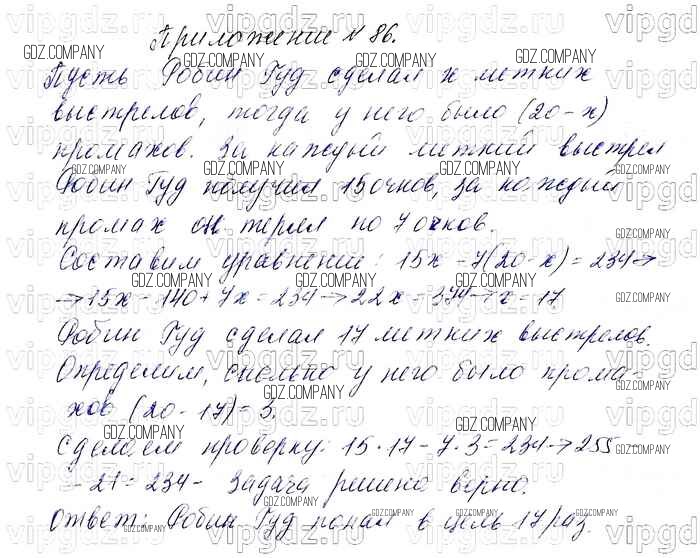 Приложение № 86.
Пусть Робин Гуд сделал х метких
выстрелов, тогда у него было (20-х)
промахов. За каждый меткий выстрел
Робин Гуд получил 15 очков, за каждый
промах он терял по 7 очков.
Составим уравнение: 15х - 7(20-х) = 234→
→15х - 140 + 7х = 234→22х = 374→х = 17
Робин Гуд сделал 17 метких выстрелов.
Определим, сколько у него было прома-
хов (20 - 17) = 3.
Сделаем проверку: 15·17 - 7·3 = 234→255-
- 21 = 234 - Задача решена верно.
Ответ: Робин Гуд попал в цель 17 раз.
GDZ.COMPANY
vipgdz.ru